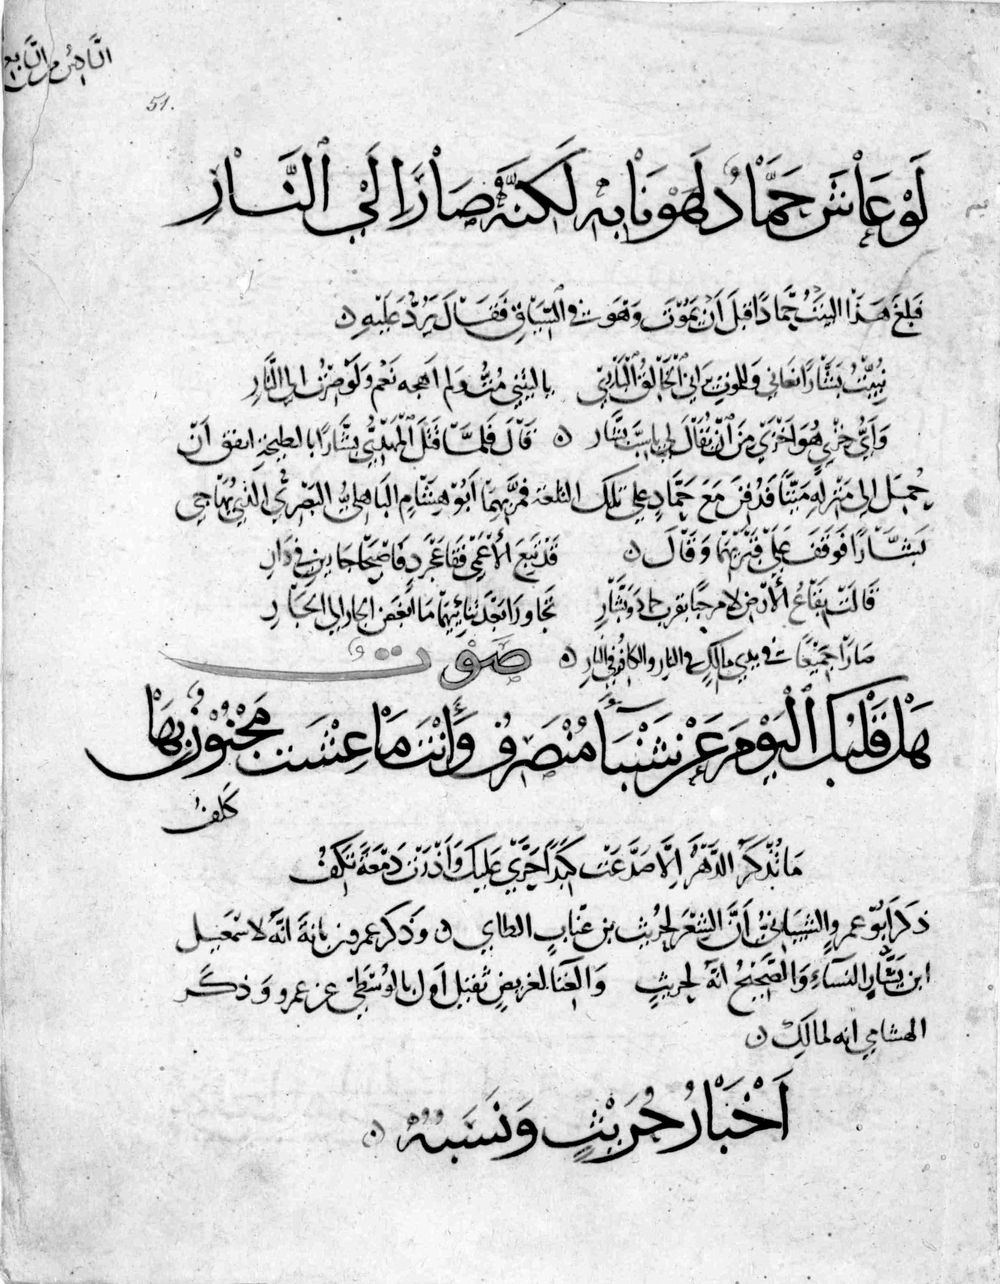 51.
لَوْ عَاْشَ حَمَّاْدٌ لَهَوْنَاْ بِهِ لَكِنَّهُ صَاْرَ اِلَي النَّاْرِ
فبلغ هَذا البَيتُ حمَّادًا قبلَ أن يَمُوْتَ وَهوَ في السِّيَاقِ فَقَالَ يَرُدُّ عَلَيْهِ ن
نُبِّئْتُ بَشَّارًا نَعَانِي وَلِلموتِ بَرَانِي الْخَالِقُ الْبَارِي يا ليتني مُتُّ ولم اهجه نَعَم ولَو صِرْتُ الى النَّارِ
وَأيُّ خزْيٍ هُوَ اَخْزَي مِن اَنْ يُقَالَ لي يا سَبَّ بشَّارِ ن قَالَ فَلمَّا قتَلَ الْمَهْدِيُّ بشَّارًا بالبطيحةِ اتفقَ اَنْ
حُمِلَ الى مَنْزلِهِ مَيِّتًا فَدُفنَ مَعَ حَمَّادٍ علي تلكَ التلعَة فمرَّ بِهِمَا اَبُوْ هِشَامٍ البَاهليُّ البَصْرِيُّ الذي يُهَاجي
بَشَّارًا فَوَقفَ عَلَي قَبْرَيْهِمَا وَقَالَ ن قَدْ تبِعَ الاَعْمَي قفَا عَجْرَدٍ فَاَصْبَحَا جَارَينِ في دَارِ
قَالَتْ بِقَاعُ الاَرْضِ لا مرحبًا بقربِ حمادٍ وَبَشَّارِ تجاورَا بَعْدَ تَنَائيهِمَا مَا اَبغَضَ الجارَ الي الجَارِ
صَارَا جَمِيْعًا في يدي مالِكٍ في النارِ والكافرُ في النارِ ن صَوْت
هَلْ قَلْبُكَ الْيَوْمَ عَنْ شَنْبَاءَ مُنْصَرِفُ وَأَنْتَ مَاْ عِشْتَ مَجْنُوْنٌ بِهَاْ
كَلِفُ
مَا تُذْكَرُ الدَّهْرَ اِلَّا صَدَّعَتْ كَبِدًا حَرَّي عَلَيْكَ وَاَذْرَتْ دَمْعَةً تَكِفُ
ذكرَ اَبُوْ عمرٍو الشيبَانيُّ اَنَّ الشعْرَ لحُريث بن عَنَّابٍ الطاي ن وَذكرَ عمرو بن بانةَ انَّهُ لاسْمَعيل
ابن يَسَارٍ النسَاءِ وَالصَّحِيْحُ انهُ لحريثٍ وَالغنَا لغريضٍ ثقيل اَول بالوُسْطَي عن عمرو وَذكرَ
الهشامي انه لمالكٍ ن
اَخْبَاْرُ حُرَيْثٍ وَنَسَبُهُ ن